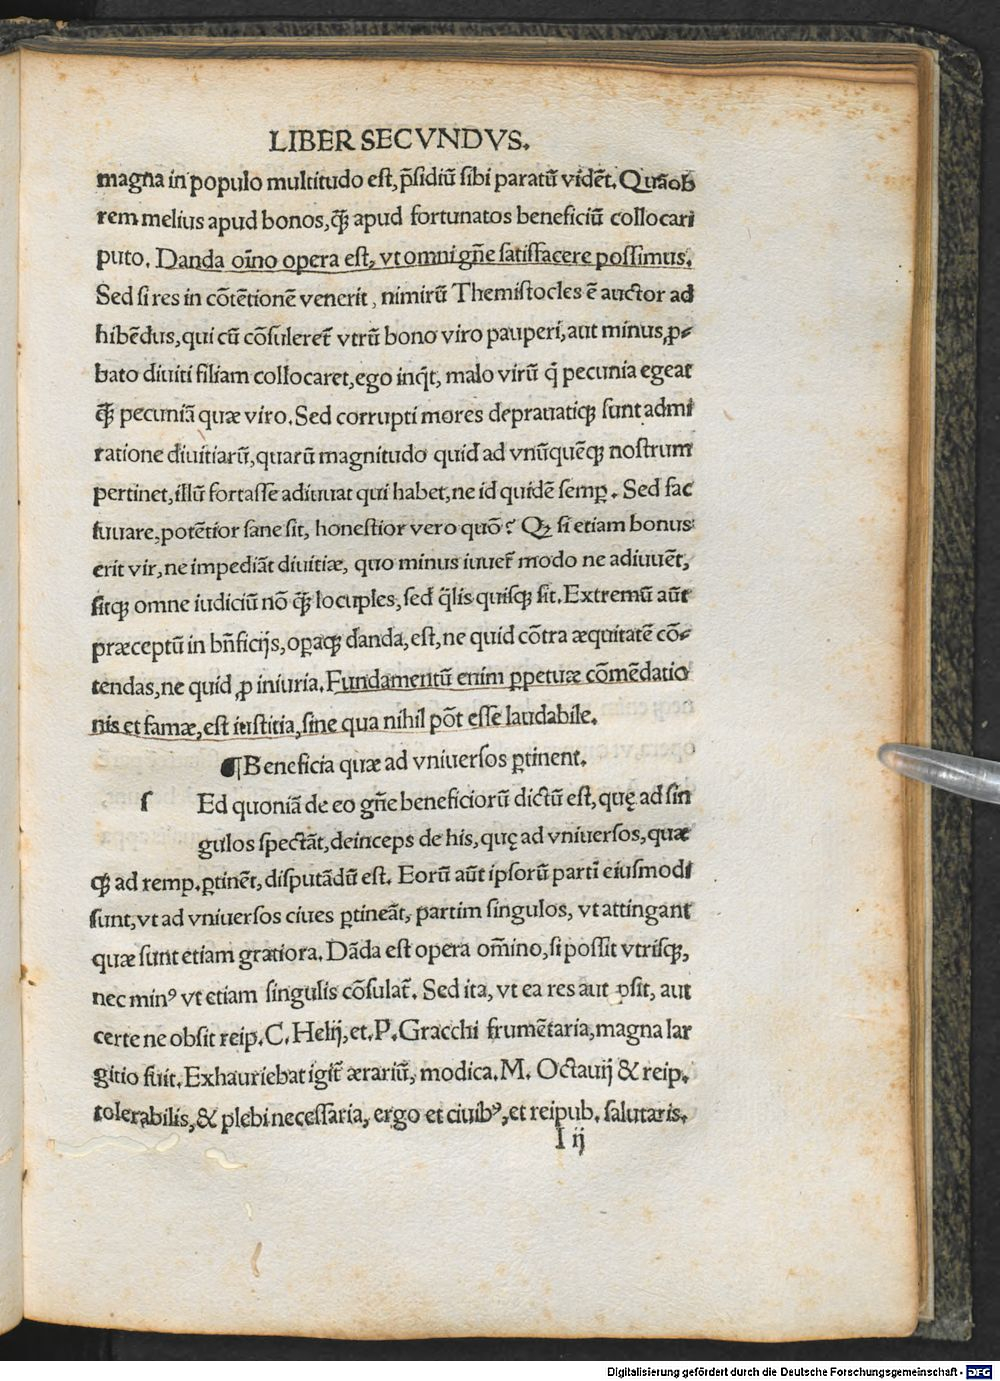 LIBER SECVNDVS.
magna in populo multitudo est, p̄sidiū sibi paratū vidēt. Quāob
rem melius apud bonos, q̄ꝫ apud fortunatos beneficiū collocari
puto. Danda oīno opera est, vt omni gn̄e satisfacere possimus.
Sed si res in cōtētionē venerit, nimirū Themistocles ē auctor ad
hibēdus, qui cū cōsuleret̄ vtrū bono viro pauperi, aut minus ꝓ-
bato diuiti filiam collocaret, ego inq̄t, malo virū q̄ pecunia egeat
q̄ꝫ pecuniā quæ viro. Sed corrupti mores deprauatiqꝫ sunt admi
ratione diuitiarū, quarū magnitudo quid ad vnūquēqꝫ nostrum
pertinet, illū fortasse adiuuat qui habet, ne id quidē semꝑ. Sed fac
iuuare, potētior sane sit, honestior vero quō? Qꝫ si etiam bonus
erit vir, ne impediāt diuitiæ, quo minus iuuet̄ modo ne adiuuēt,
sitqꝫ omne iudiciū nō q̄ꝫ locuples, sed q̄lis quisqꝫ sit. Extremū aūt
præceptū in bn̄ficijs, oꝑaqꝫ danda, est, ne quid cōtra æquitatē cō-
tendas, ne quid ꝓ iniuria. Fundamentū enim ꝑpetuæ cōmēdatio
nis et famæ, est iustitia, sine qua nihil pōt esse laudabile.
¶ Beneficia quæ ad vniuersos ꝑtinent.
ſ Ed quoniā de eo gn̄e beneficiorū dictū est, quę ad sin
gulos spectāt, deinceps de his, quę ad vniuersos, quæ
qꝫ ad remp. ꝑtinēt, disputādū est. Eorū aūt ipsorū partī eiusmodi
sunt, vt ad vniuersos ciues ꝑtineāt, partim singulos, vt attingant
quæ sunt etiam gratiora. Dāda est opera om̄ino, si possit vtrisqꝫ,
nec minꝰ vt etiam singulis cōsulat̄. Sed ita, vt ea res aut ꝓsit, aut
certe ne obsit reip. C. Helij, et. P. Gracchi frumētaria, magna lar
gitio fuit. Exhauriebat igit̄ ærariū, modica. M. Octauij & reip.
tolerabilis, & plebi necessaria, ergo et ciuibꝰ, et reipub. salutaris.
I ij
Digitalisierung gefördert durch die Deutsche Forschungsgemeinschaft - DFG